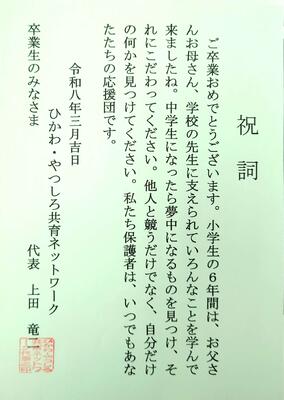 祝詞
ご卒業おめでとうございます。小学生の6年間は、お父さ
んお母さん、学校の先生に支えられていろんなことを学んで
来ましたね。中学生になったら夢中になるものを見つけ、そ
れにこだわってください。他人と競うだけでなく、自分だけ
の何かを見つけてください。私たち保護者は、いつでもあな
たたちの応援団です。
令和八年三月吉日
ひかわ・やつしろ共育ネットワーク
代表 上田 竜二
卒業生のみなさま